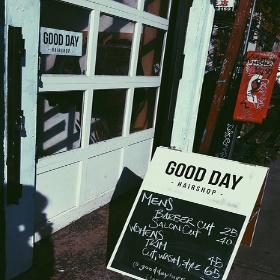 GOOD DAY
HAIRSHOP
GOOD DAY
- HAIRSHOP -
MENS
BARBER CUT 25
SALON CUT 40
WOMENS
TRIM 45
CUT, WASH, STYLE 65